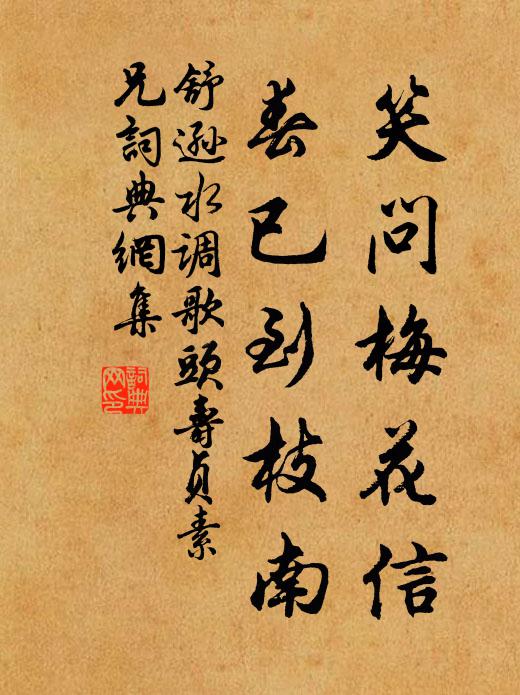 笑问梅花信
春已到枝南
舒遜水调歌頭壽貞素
兄詞典網集
詞典
网印